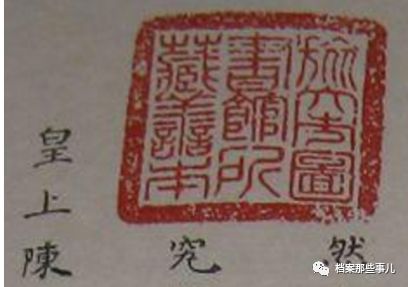 旅大市圖
書館所
藏善本
然
究
皇上陳
档案那些事儿